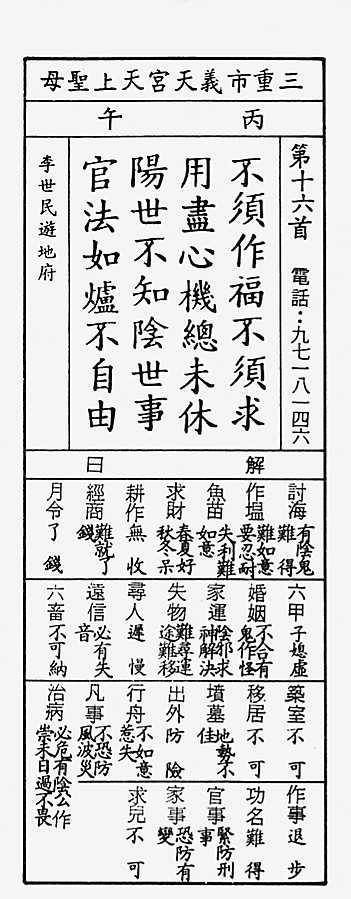 三重市義天宮天上聖母
丙午
第十六首 電話：九七一八一四六
不須作福不須求
用盡心機總未休
陽世不知陰世事
官法如爐不自由
李世民遊地府
解曰
討海 有陰鬼難得
作塭 難如意要忍耐
魚苗 失利難如意
求財 春夏好秋冬呆
耕作 無收
經商 難就了錢
月令 了錢
六甲 子媳虛
婚姻 不合有鬼作怪
家運 陰邪求神解決
失物 難尋運途難移
尋人 遲慢
遠信 必有失音
六畜 不可納
築室 不可
移居 不可
墳墓 地勢不佳
出外 防險
行舟 不如意惹失
凡事 不恐防風波災
治病 必危有陰公作崇未日過不畏
作事 退步
功名 難得
官事 緊防刑事
家事 恐防有變
求兒 不可